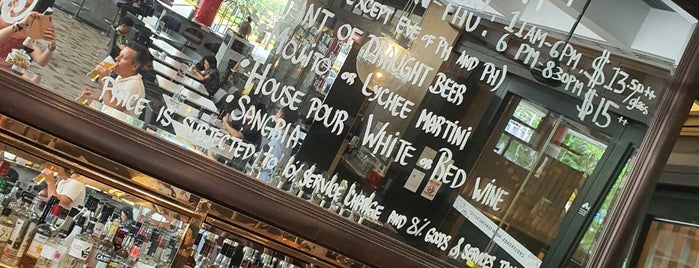 - THU: 11AM-6PM $13.50++
6PM-830PM $15++ /glass
EXCEPT EVE OF PH AND PH)
PINT OF DRAUGHT BEER
MOJITO OR LYCHEE MARTINI
• HOUSE POUR WHITE OR RED WINE
• SANGRIA
PRICE IS SUBJECTED TO 10% SERVICE CHARGE AND 8% GOODS & SERVICES